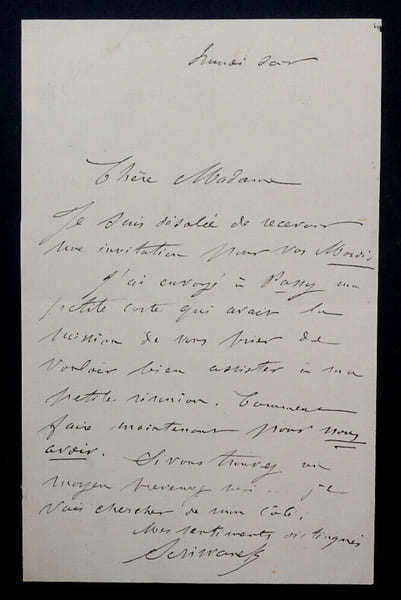 Lundi soir
Chère Madame
Je suis désolée de recevoir
une invitation pour vos Mardis
j'ai envoyé à Passy ma
petite carte qui avait la
mission de vous prier de
vouloir bien assister à ma
petite réunion. Comment
faire maintenant pour nous
avoir. Si vous trouvez un
moyen prévenez moi .. je
vais chercher de mon côté,
Mes sentiments distingués